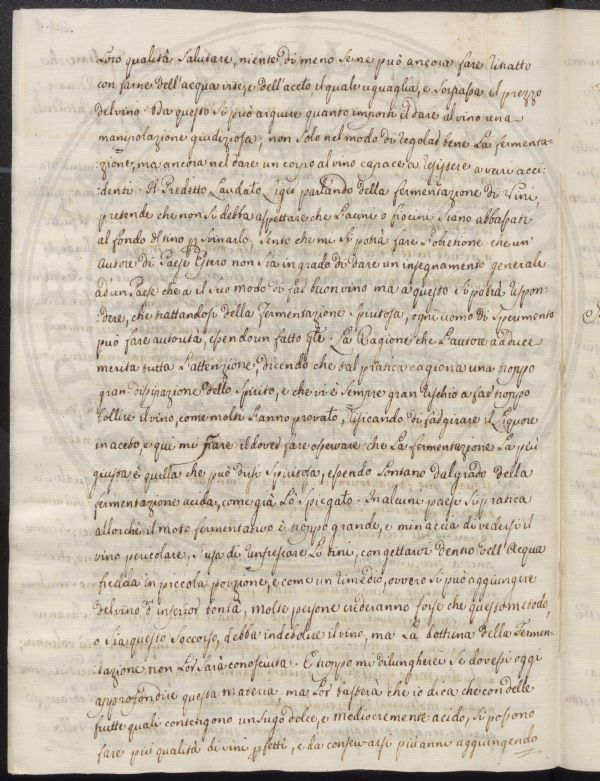 Loro qualità salutare, niente di meno se ne può ancora fare ritratto
con farne dell'acqua vite, e dell'aceto il quale uguaglia, e sorpassa il prezzo
del vino. Da questo si può arguire quanto importi il dare al vino una
manipolazione giudiziosa, non solo nel modo di regolar bene La fermenta=
:zione, ma ancora nel dare un corpo al vino capace a resistere a varj acci
:denti. Il Predetto Laudato parlando della fermentazione di Vini,
pretende che non si debba aspettare che L'acini o fiocini siano abbassati
al fondo del tino p svinarlo. Sento che mi si potrà fare L'obietione che un'
Autore di Paese Estero non sia in grado di dare un insegnamento generale
ad un Paese che a il suo modo di far buon vino ma a questo si potrà rispon=
:dere, che trattandosi della Fermentazione spiritosa, ogni uomo di sperimento
può fare autorità, essendo un fatto
La Ragione che L'autore adduce
merita tutta L'attenzione, dicendo che tal pratica cagiona una troppo
gran dissipazione dello Spirito, e che vi è sempre gran rischio a far troppo
bollire il vino, come molti L'anno provato, risicando di far girare il Liquore
in aceto, e qui mi pare il dover fare osservare che La fermentazione La più
giusta è quella che può dirsi spiritosa, essendo Lontano dal grado della
fermentazione acida, come già Lo spiegato. In alcune paesi si pratica
allorchè il moto fermentativo è troppo grande, e minaccia di vedersi il
vino pericolare, s'usa di rinfrescare Lo tini, con gettarvi dentro dell'Acqua
fredda in piccola porzione, e come un rimedio, ovvero si può aggiungere
del vino d'inferior bontà, molte persone crederanno forse che questo metodo,
o sia questo soccorso, debba indebolire il vino, ma La dottrina della Fermen=
:tazione non Lor sarà conosciuta. E troppo mi dilungherei se dovessi oggi
approfondire questa materia, ma Lor basterà che io dica che con delle
frutte quali contengono un sugo dolce, e mediocremente acido, si possono
fare più qualità di vini pfetti, e da conservarsi più anni aggiungendo